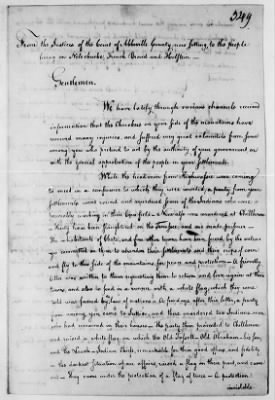 3249
From the Justices of the Court of Abbeville County, now sitting, to the people
living on Nolichucke, French Broad and Holstein —
Gentlemen,
We have lately through various channels received
information that the Cherokees on your side of the mountains have
received many injuries, and suffered very great calamities from some
among you who pretend to act by the authority of your government or
with the general approbation of the people in your settlements.
While the head-men from Highwassee were coming
to meet in a conference to which they were invited, a party from your
settlements went round and murdered some of the Indians who were
working in their
was murdered at Chilhowee
the
inhabitants of State, and five other towns have been forced by the
to abandon their settlements and their crops of corn
and fly to this side of the mountains for peace and protection. A friendly
was written to them requesting them to return and live again at their
towns, and also to send in a runner with a white flag, which they were
told was sacred by laws of nations. A few days after this letter, a party
from among you came to and there murdered two Indian men
who had remained in their houses — the party then proceeded to Chilhowee
and raised a white flag, on which the Old Tassell, Old Abraham, his son,
and the Indian Chiefs, remarkable for their good offices and fidelity
in the darkest situation of our affairs, raised a flag on their part, and came
out — They came under the protection of a flag of truce — a protection
inviolable